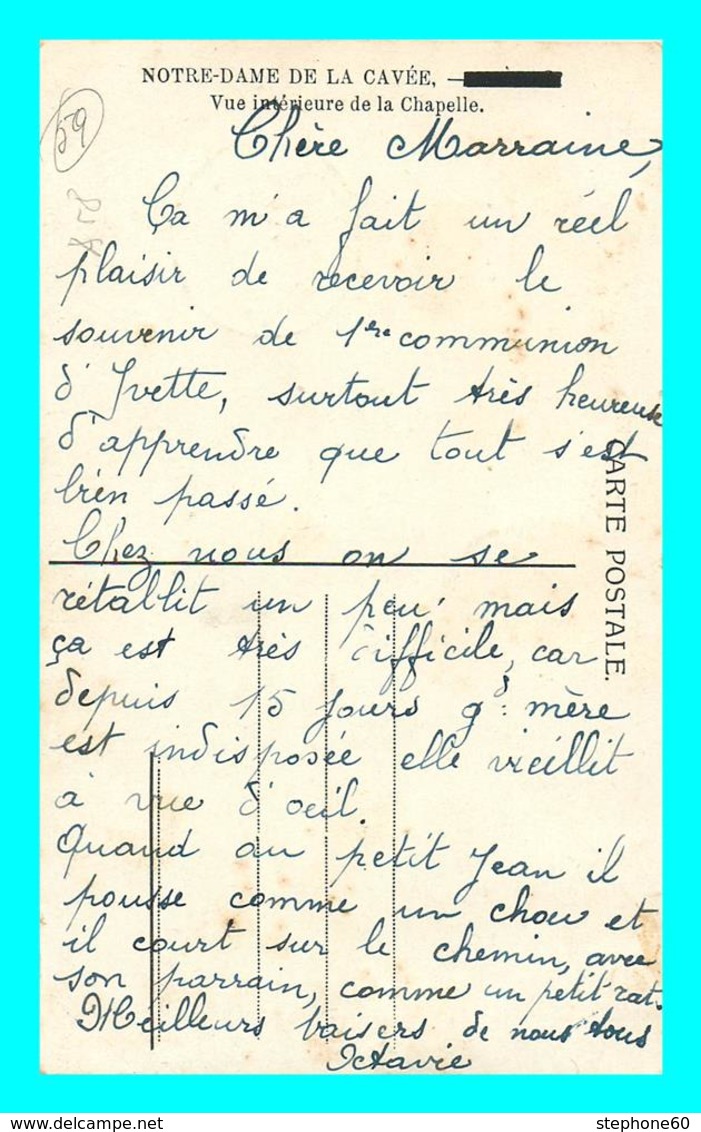 NOTRE-DAME DE LA CAVÉE, —
Vue intérieure de la Chapelle.
59
A58
Chère Marraine,
Ça m'a fait un réel
plaisir de recevoir le
souvenir de 1ère communion
d'Yvette, surtout très heureuse
d'apprendre que tout s'est
bien passé.
CARTE POSTALE.
Chez nous on se
rétablit un peu, mais
ça est très difficile, car
depuis 15 jours gd mère
est indisposée elle vieillit
à vue d'oeil.
Quand au petit Jean il
pousse comme un chou et
il court sur le chemin, avec
son parrain, comme un petit rat.
Meilleurs baisers de nous tous
Octavie
stephone60